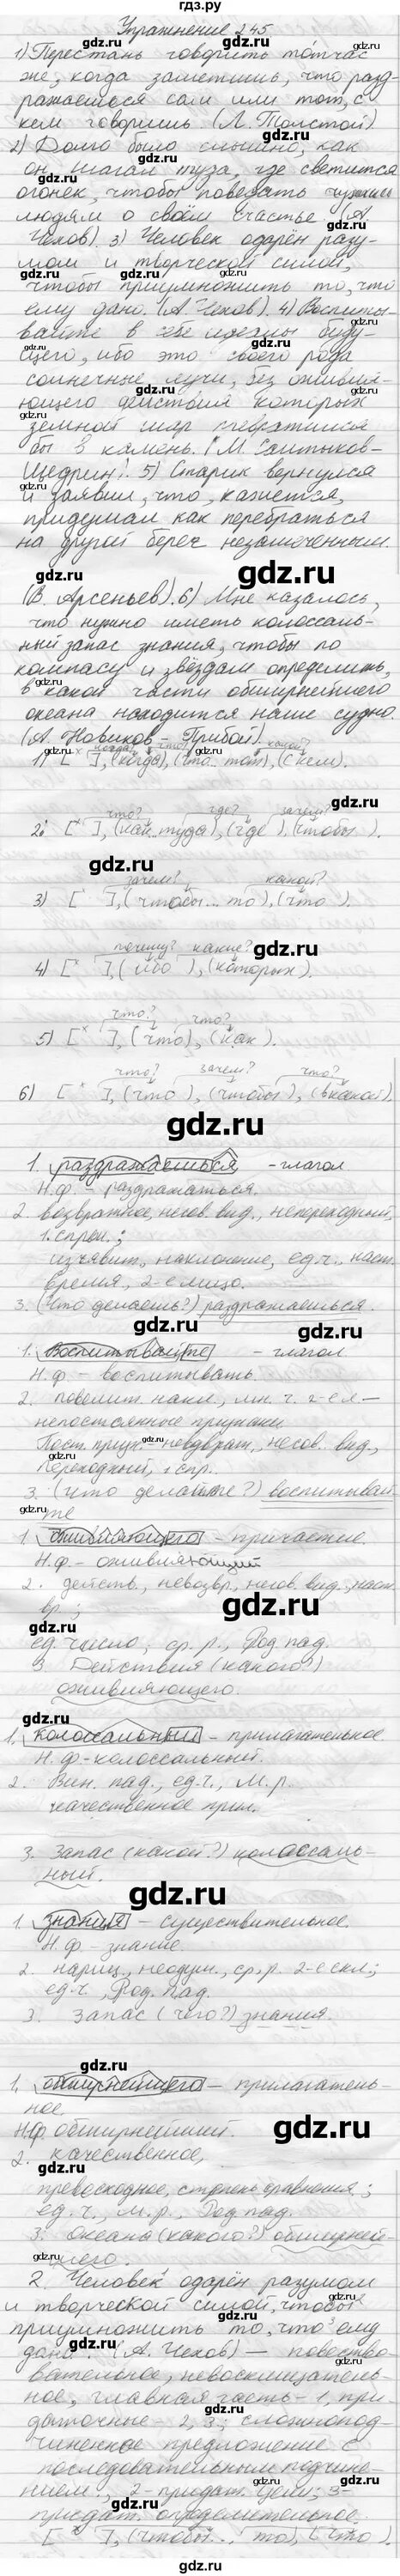 гдз.ру
Упражнение 245
1) Перестань говорить тотчас
же, когда заметишь, что разд-
ражаешься сам или тот, с
кем говоришь. (Л. Толстой)
2) Долго было слышно, как
он шагал туда, где светится
огонёк, чтобы поведать чужим
людям о своём счастье. (А.
Чехов). 3) Человек одарён разу-
мом и творческой силой,
чтобы приумножить то, что
ему дано. (А. Чехов). 4) Воспиты-
вайте в себе идеалы буду-
щего, ибо это своего рода
солнечные лучи, без оживля-
ющего действия которых
земной шар превратился
бы в камень. (М. Салтыков-
Щедрин). 5) Старик вернулся
и заявил, что, кажется,
придумал как перебраться
на другой берег незамеченным.
gdz.ru
(В. Арсеньев). 6) Мне казалось,
что нужно иметь колоссаль-
ный запас знания, чтобы по
компасу и звёздам определить,
в какой части обширнейшего
океана находится наше судно.
(А. Новиков-Прибой).
когда? что? какой?
1) [ x ], (когда), (что.. тот), (с кем).
что? где? зачем?
2) [ x ], (как.. туда), (где ), (чтобы ).
gdz.ru
зачем? какой?
3) [ ], (чтобы... то), (что ).
почему? какие? gdz.ru
4) [ x ], ( ибо ), (которых ).
что? что?
5) [ x ], (что), (как ).
что? зачем? что?
6) [ x ], (что ), (чтобы ), (в какой).
gdz.ru
1. раздражаешься - глагол
Н.ф. - раздражаться.
2. возвратное, несов. вид., непереходный,
1. спреж.;
изъявит., наклонение, ед.ч., наст.
время, 2-е лицо.
3. (что делаешь?) раздражаешься.
gdz.ru
1. Воспитывайте - глагол
Н.ф - воспитывать.
2. повелит. накл., мн. ч. 2-е л —
непостоянные признаки
Пост. призн. - невозврат., несов. вид,
переходный, 1 спр..
3. (что делайте?) воспитывай-
те
1. оживляющего - причастие.
Н.ф - оживляющий
2. действ., невозвр., несов. вид., наст.
вр.;
gdz.ru
ед. число, ср. р., Род. пад.
3. Действия (какого?)
оживляющего.
gdz.ru
1. колоссальный - прилагательное.
Н.ф - колоссальный.
2. Вин. пад., ед.ч., м.р.
качественное прил.
3. Запас (какой?) колоссаль-
ный.
gdz.ru
1. знания - существительное.
Н.ф. - знание.
2. нариц., неодуш., ср. р. 2-е скл;
ед.ч., Род. пад.
3. Запас (чего?) знания.
gdz.ru
1. обширнейшего - прилагатель-
ное.
Н.ф. обширнейший.
gdz.ru
2. качественное,
gdz.ru
превосходное, степень сравнения;
ед. ч., м. р., Род. пад.
3. Океана (какого?) обширней-
шего.
2. Человек одарён разумом
и творческой силой, чтобы
приумножить то, что ему
дано. (А. Чехов) — повество-
вательное, невосклицатель-
ное, главная часть - 1, при-
даточные - 2, 3; сложнопод-
чиненное предложение с
последовательным подчине-
нием., 2- придат. цели; 3-
придат. определительное.
[ x ], (чтобы... то), (что ).
gdz.ru